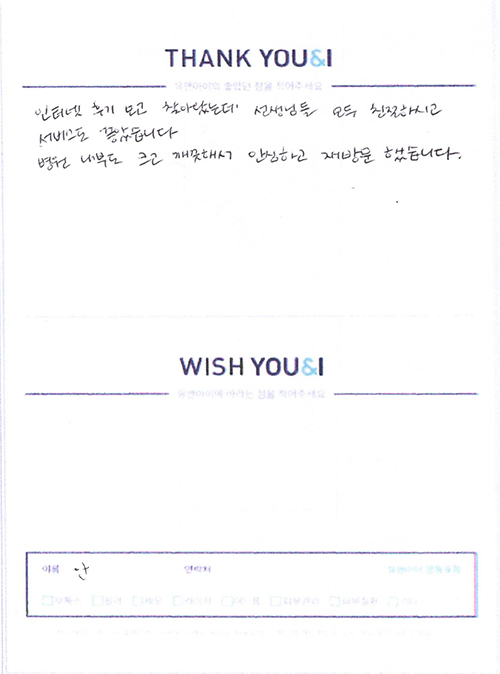 THANK YOU&I
유앤아이의 좋았던 점을 적어주세요
인터넷 후기 보고 찾아왔는데 선생님들 모두 친절하시고
서비스도 좋았습니다
병원 내부도 크고 깨끗해서 안심하고 재방문 했습니다.
WISH YOU&I
유앤아이에 바라는 점을 적어주세요
이름 안 연락처
보톡스 필러 레이저 여드름 피부관리